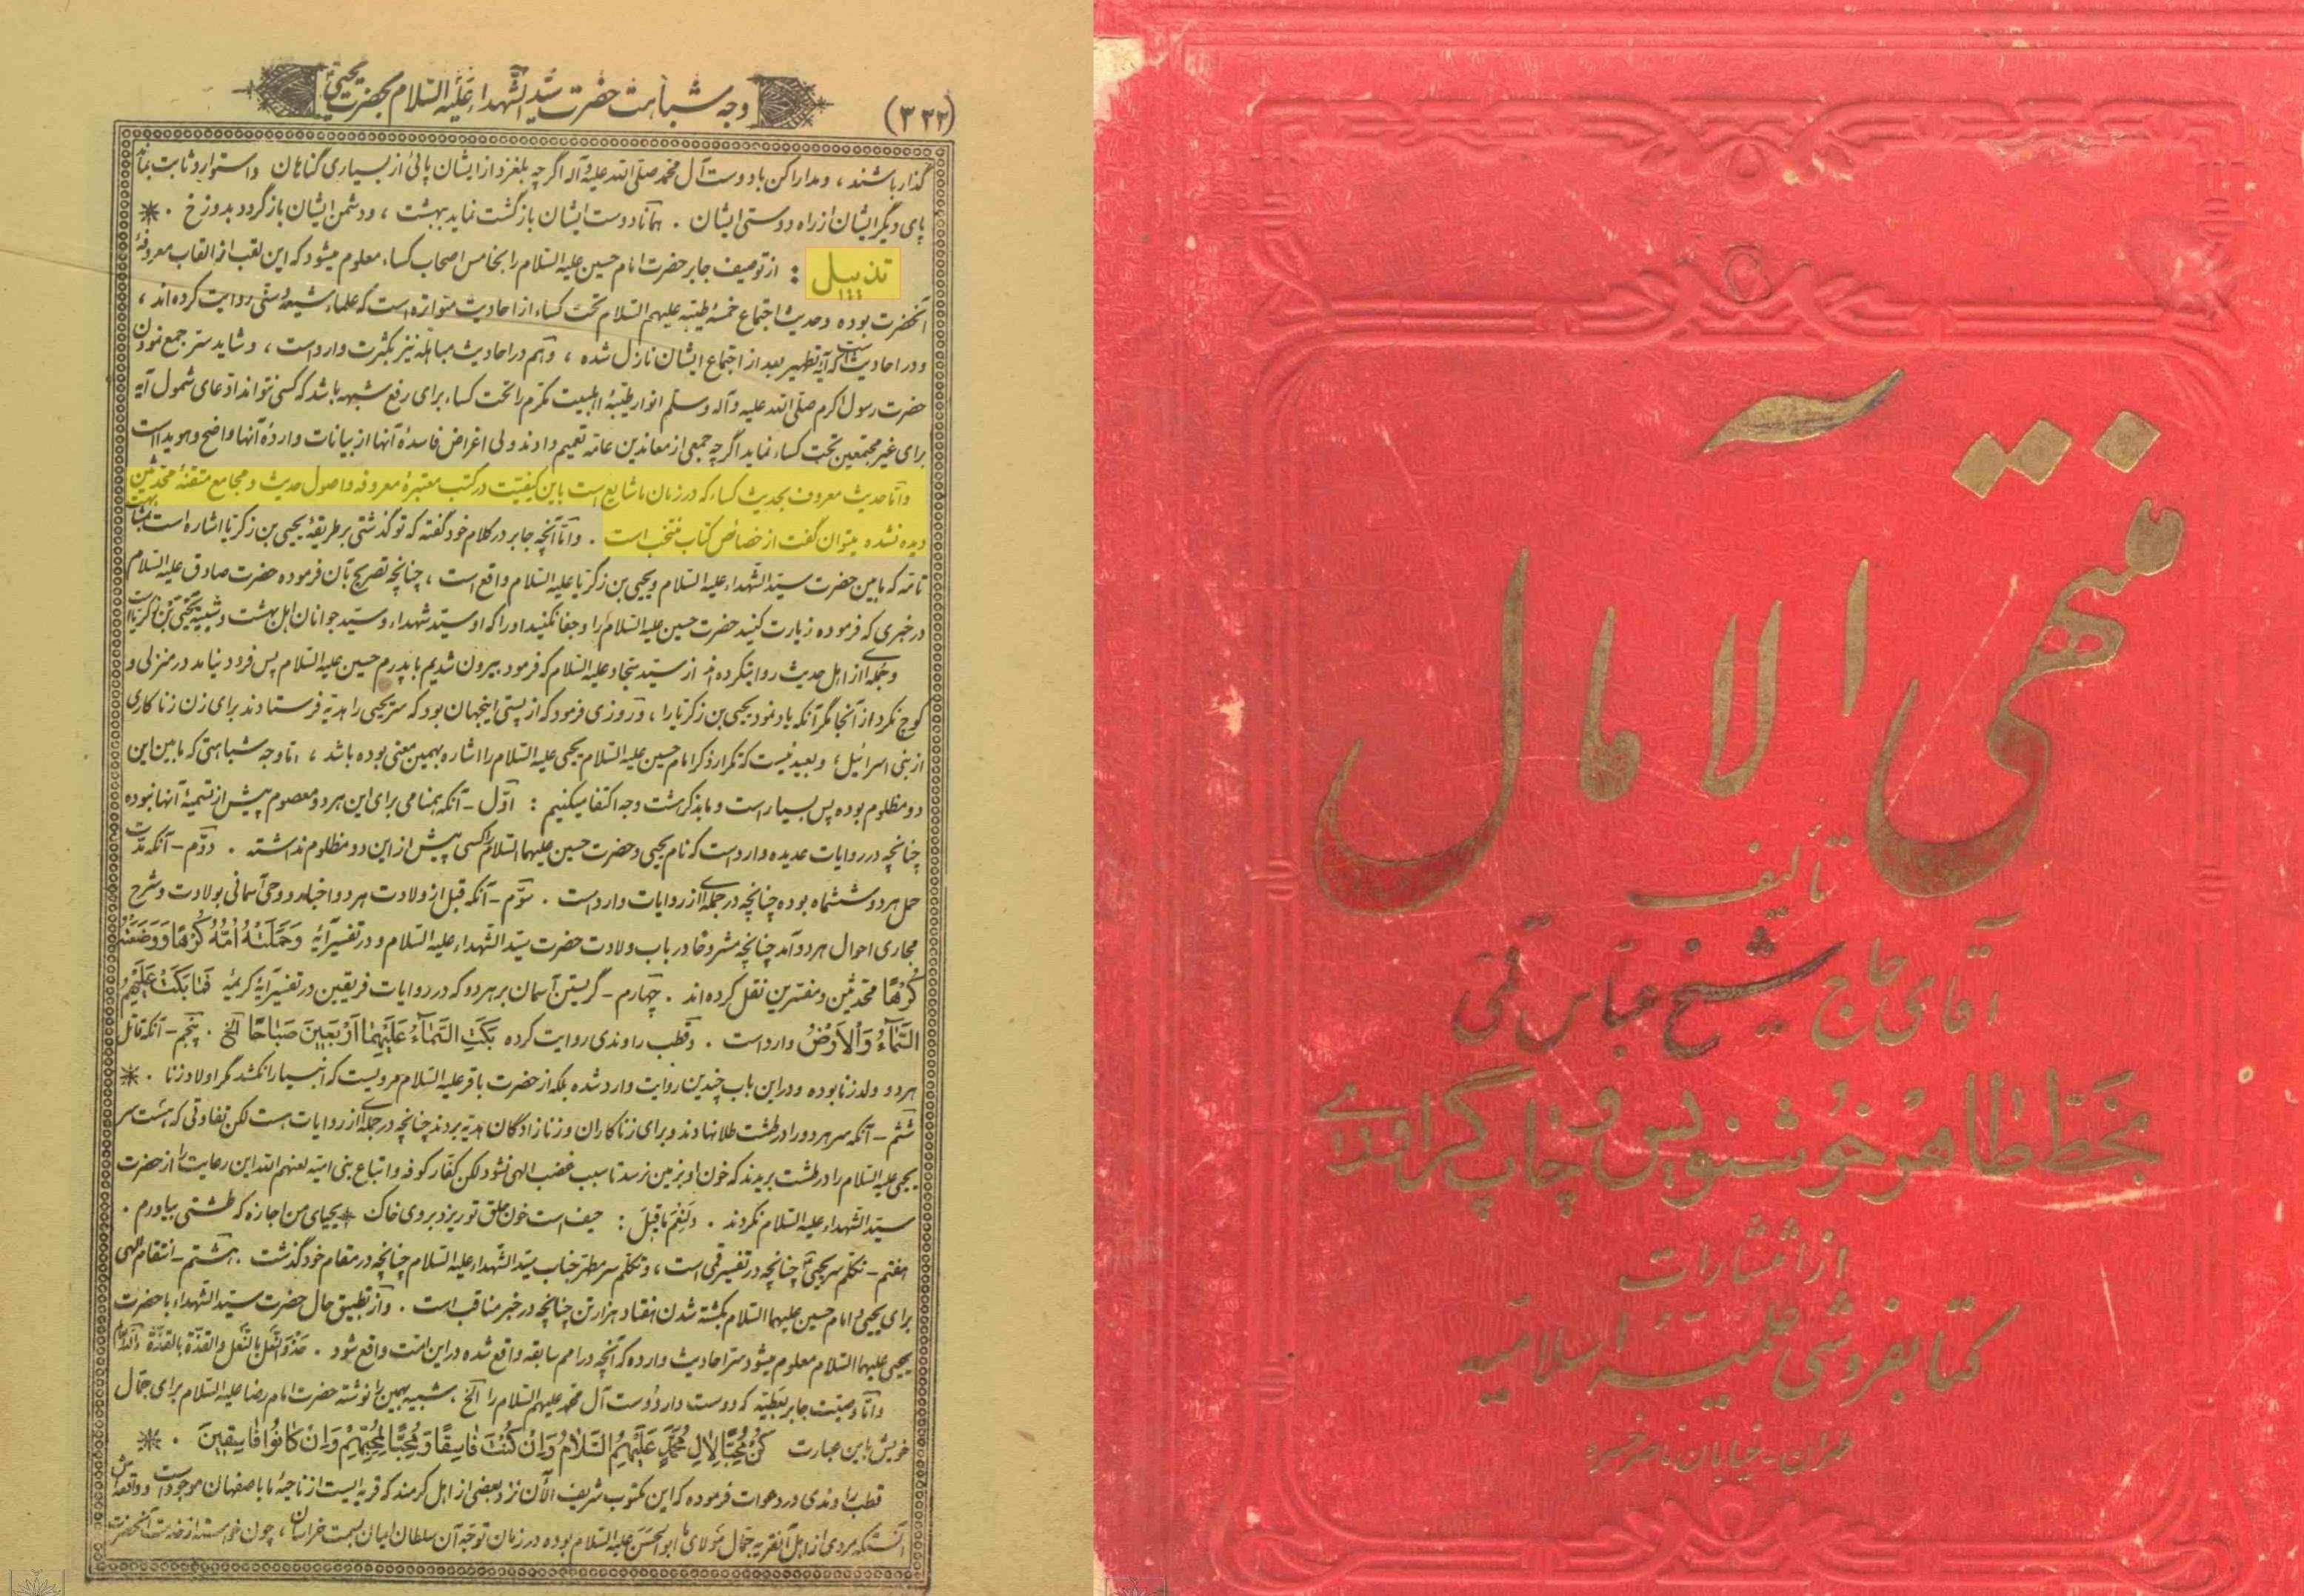 (۳۳۲)
وجه شباهت حضرت سیّد الشّهداء عَلَیْهِ السَّلام بحضرت یحیی
گذار باشند ، و مدارا کن با دوست آل محمّد صلّی الله علیه و آله اگر چه بلغزد از ایشان پائی از بسیاری گناهان و استوار و ثابت بماند
پای دیگر ایشان از راه دوستی ایشان . همانا دوست ایشان بازگشت نماید ببهشت ، و دشمن ایشان بازگردد بدوزخ . *
تذییل : از توصیف جابر حضرت امام حسین علیه السّلام را بخامس اصحاب کساء معلوم میشود که این لقب از القاب معروفهٔ
آنحضرت بوده و حدیث اجتماع خمسهٔ طیّبه علیهم السّلام تحت کساء از احادیث متواتره است که علماء شیعه و سنّی روایت کرده‌اند ،
و در احادیث است که آیهٔ تطهیر بعد از اجتماع ایشان نازل شده ، و هم در احادیث مباهله نیز بکثرت وارد است ، و شاید سرّ جمع نمودن
حضرت رسول اکرم صلّی الله علیه و آله و سلّم انوار طیّبهٔ اهلبیت مکرّم را تحت کساء برای رفع شبهه باشد که کسی نتواند ادّعای شمول آیه
برای غیر مجتمعین تحت کساء نماید اگر چه جمعی از معاندین عامّه تعمیم دادند ولی اغراض فاسدهٔ آنها از بیانات واردهٔ آنها واضح و هویدا است
و امّا حدیث معروف بحدیث کساء که در زمان ما شایع است باین کیفیّت در کتب معتبرهٔ معروفه و اصول حدیث و مجامع متقنهٔ محدّثین
دیده نشده میتوان گفت از خصائص کتاب منتخب است . و امّا آنچه جابر در کلام خود گفته که تو گذشتی بر طریقهٔ یحیی بن زکریّا اشاره است بمشابهت
تامّه که مابین حضرت سیّد الشّهداء علیه السّلام و یحیی بن زکریّا علیه السّلام واقع است ، چنانچه تصریح بآن فرموده حضرت صادق علیه السّلام
در خبری که فرموده زیارت کنید حضرت حسین علیه السّلام را و جفا نکنید او را که او سیّد شهداء و سیّد جوانان اهل بهشت و شبیه یحیی بن زکریّا است
و جمله‌ای از اهل حدیث روایت کرده‌اند از سیّد سجّاد علیه السّلام که فرمود بیرون شدیم با پدرم حسین علیه السّلام پس فرود نیامد در منزلی و
کوچ نکرد از آنجا مگر آنکه یاد نمود یحیی بن زکریّا را ، و روزی فرمود که از پستی اینجهان بود که سر یحیی را هدیه فرستادند برای زن زناکاری
از بنی اسرائیل ؛ و بعید نیست که تکرار ذکر امام حسین علیه السّلام یحیی علیه السّلام را اشاره بهمین معنی بوده باشد ، امّا وجه شباهتی که مابین این
دو مظلوم بوده پس بسیار است و ما بذکر هشت وجه اکتفا میکنیم : اوّل - آنکه همنامی برای این هر دو معصوم پیش از تسمیهٔ آنها نبوده
چنانچه در روایات عدیده وارد است که نام یحیی و حضرت حسین علیهما السّلام را کسی پیش از این دو مظلوم نداشته . دوّم - آنکه مدّت
حمل هر دو ششماه بوده چنانچه در جمله‌ای از روایات وارد است . سوّم - آنکه قبل از ولادت هر دو اخبار و وحی آسمانی بولادت و شرح
مجاری احوال هر دو آمد چنانچه مشروحا در باب ولادت حضرت سیّد الشّهداء علیه السّلام و در تفسیر آیهٔ وَحَمَلَتْهُ اُمُّهُ کُرْهًا وَوَضَعَتْهُ
کُرْهًا محدّثین و مفسّرین نقل کرده‌اند . چهارم - گریستن آسمان بر هر دو که در روایات فریقین در تفسیر آیهٔ کریمهٔ فَمٰا بَکَتْ عَلَیْهِمُ
السَّمٰآءُ وَالْاَرْضُ وارد است . و قطب راوندی روایت کرده بَکَتِ السَّمٰآءُ عَلَیْهِمٰا اَرْبَعینَ صَبٰاحًا الخ . پنجم - آنکه قاتل
هر دو ولد زنا بوده و در این باب چندین روایت وارد شده بلکه از حضرت باقر علیه السّلام مرویست که انبیا را نکشد مگر اولاد زنا . *
ششم - آنکه سر هر دو را در طشت طلا نهادند و برای زناکاران و زنازادگان هدیه بردند چنانچه در جمله‌ای از روایات هست لکن تفاوتی که هست سر
یحیی علیه السّلام را در طشت بریدند که خون او بزمین نرسد تا سبب غضب الهی نشود لکن کفّار کوفه و اتباع بنی امیّه لعنهم الله این رعایت را از حضرت
سیّد الشّهداء علیه السّلام نکردند . وَلَنِعْمَ مٰا قیلَ : حیف است خون حلق تو ریزد بروی خاک * یحیای من اجازه که طشتی بیاورم .
هفتم - تکلّم سر یحیی چنانچه در تفسیر قمی است ، و تکلّم سر مطهّر جناب سیّد الشّهداء علیه السّلام چنانچه در مقام خود گذشت . هشتم - انتقام الهی
برای یحیی و امام حسین علیهما السّلام بکشته شدن هفتاد هزار تن چنانچه در خبر مناقب است . و از تطبیق حال حضرت سیّد الشهداء با حضرت
یحیی علیهما السّلام معلوم میشود سرّ احادیث وارده که آنچه در امم سابقه واقع شده در این امّت واقع شود . حَذْوَ النَّعْلِ بِالنَّعْلِ وَالقُذَّةِ بِالقُذَّةِ
و امّا وصیّت جابر بعَطیّه که دوست دار دوست آل محمّد علیهم السّلام را الخ ، شبیه بهمین را نوشته حضرت امام رضا علیه السّلام برای جمّال
خویش باین عبارت کُنْ مُحِبًّا لِاٰلِ مُحَمَّدٍ عَلَیْهِمُ السَّلامُ وَاِنْ کُنْتَ فٰاسِقًا وَ مُحِبًّا لِمُحِبّیهِمْ وَاِنْ کٰانُوا فٰاسِقینَ . *
قطب راوندی در دعوات فرموده که این مکتوب شریف الآن نزد بعضی از اهل کرمند که قریه‌ایست از ناحیهٔ ما باصفهان موجود است و واقعه‌اش
آنستکه مردی از اهل آنقریه جمّال مولای ما ابوالحسن علیه السّلام بوده در زمان توجّه آن سلطان امیان بسمت خراسان ، چون خواسته از خدمت آنحضرت
منتهی الآمال
تألیف
آقای حاج شیخ عباس قمی
بخطّ طاهر خوشنویس و چاپ گراوری
از انتشارات
کتابفروشی علمیّهٔ اسلامیّه
طهران - خیابان ناصر خسرو